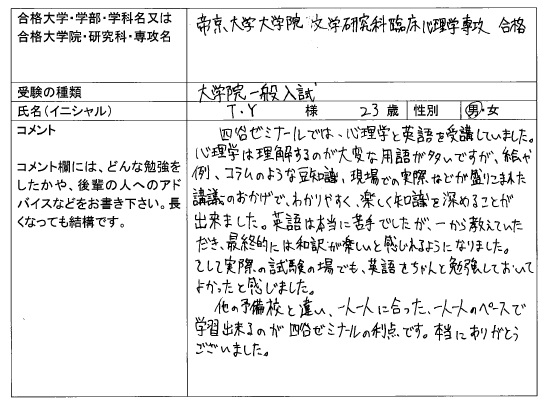 合格大学・学部・学科名又は
合格大学院・研究科・専攻名
帝京大学大学院 文学研究科臨床心理学専攻 合格
受験の種類
大学院一般入試
氏名(イニシャル)
T.Y 様 23歳 性別 男・女
コメント
コメント欄には、どんな勉強を
したかや、後輩の人へのアド
バイスなどをお書き下さい。長
くなっても結構です。
四谷ゼミナールでは、心理学と英語を受講していました。
心理学は理解するのが大変な用語が多いですが、絵や
例、コラムのような豆知識、現場での実際などが盛りこまれた
講議のおかげで、わかりやすく、楽しく知識を深めることが
出来ました。英語は本当に苦手でしたが、一から教えていた
だき、最終的には和訳が楽しいと感じれるようになりました。
そして実際の試験の場でも、英語をちゃんと勉強しておいて
よかったと感じました。
他の予備校と違い、一人一人に合った、一人一人のペースで
学習出来るのが四谷ゼミナールの利点です。本当にありがとう
ございました。